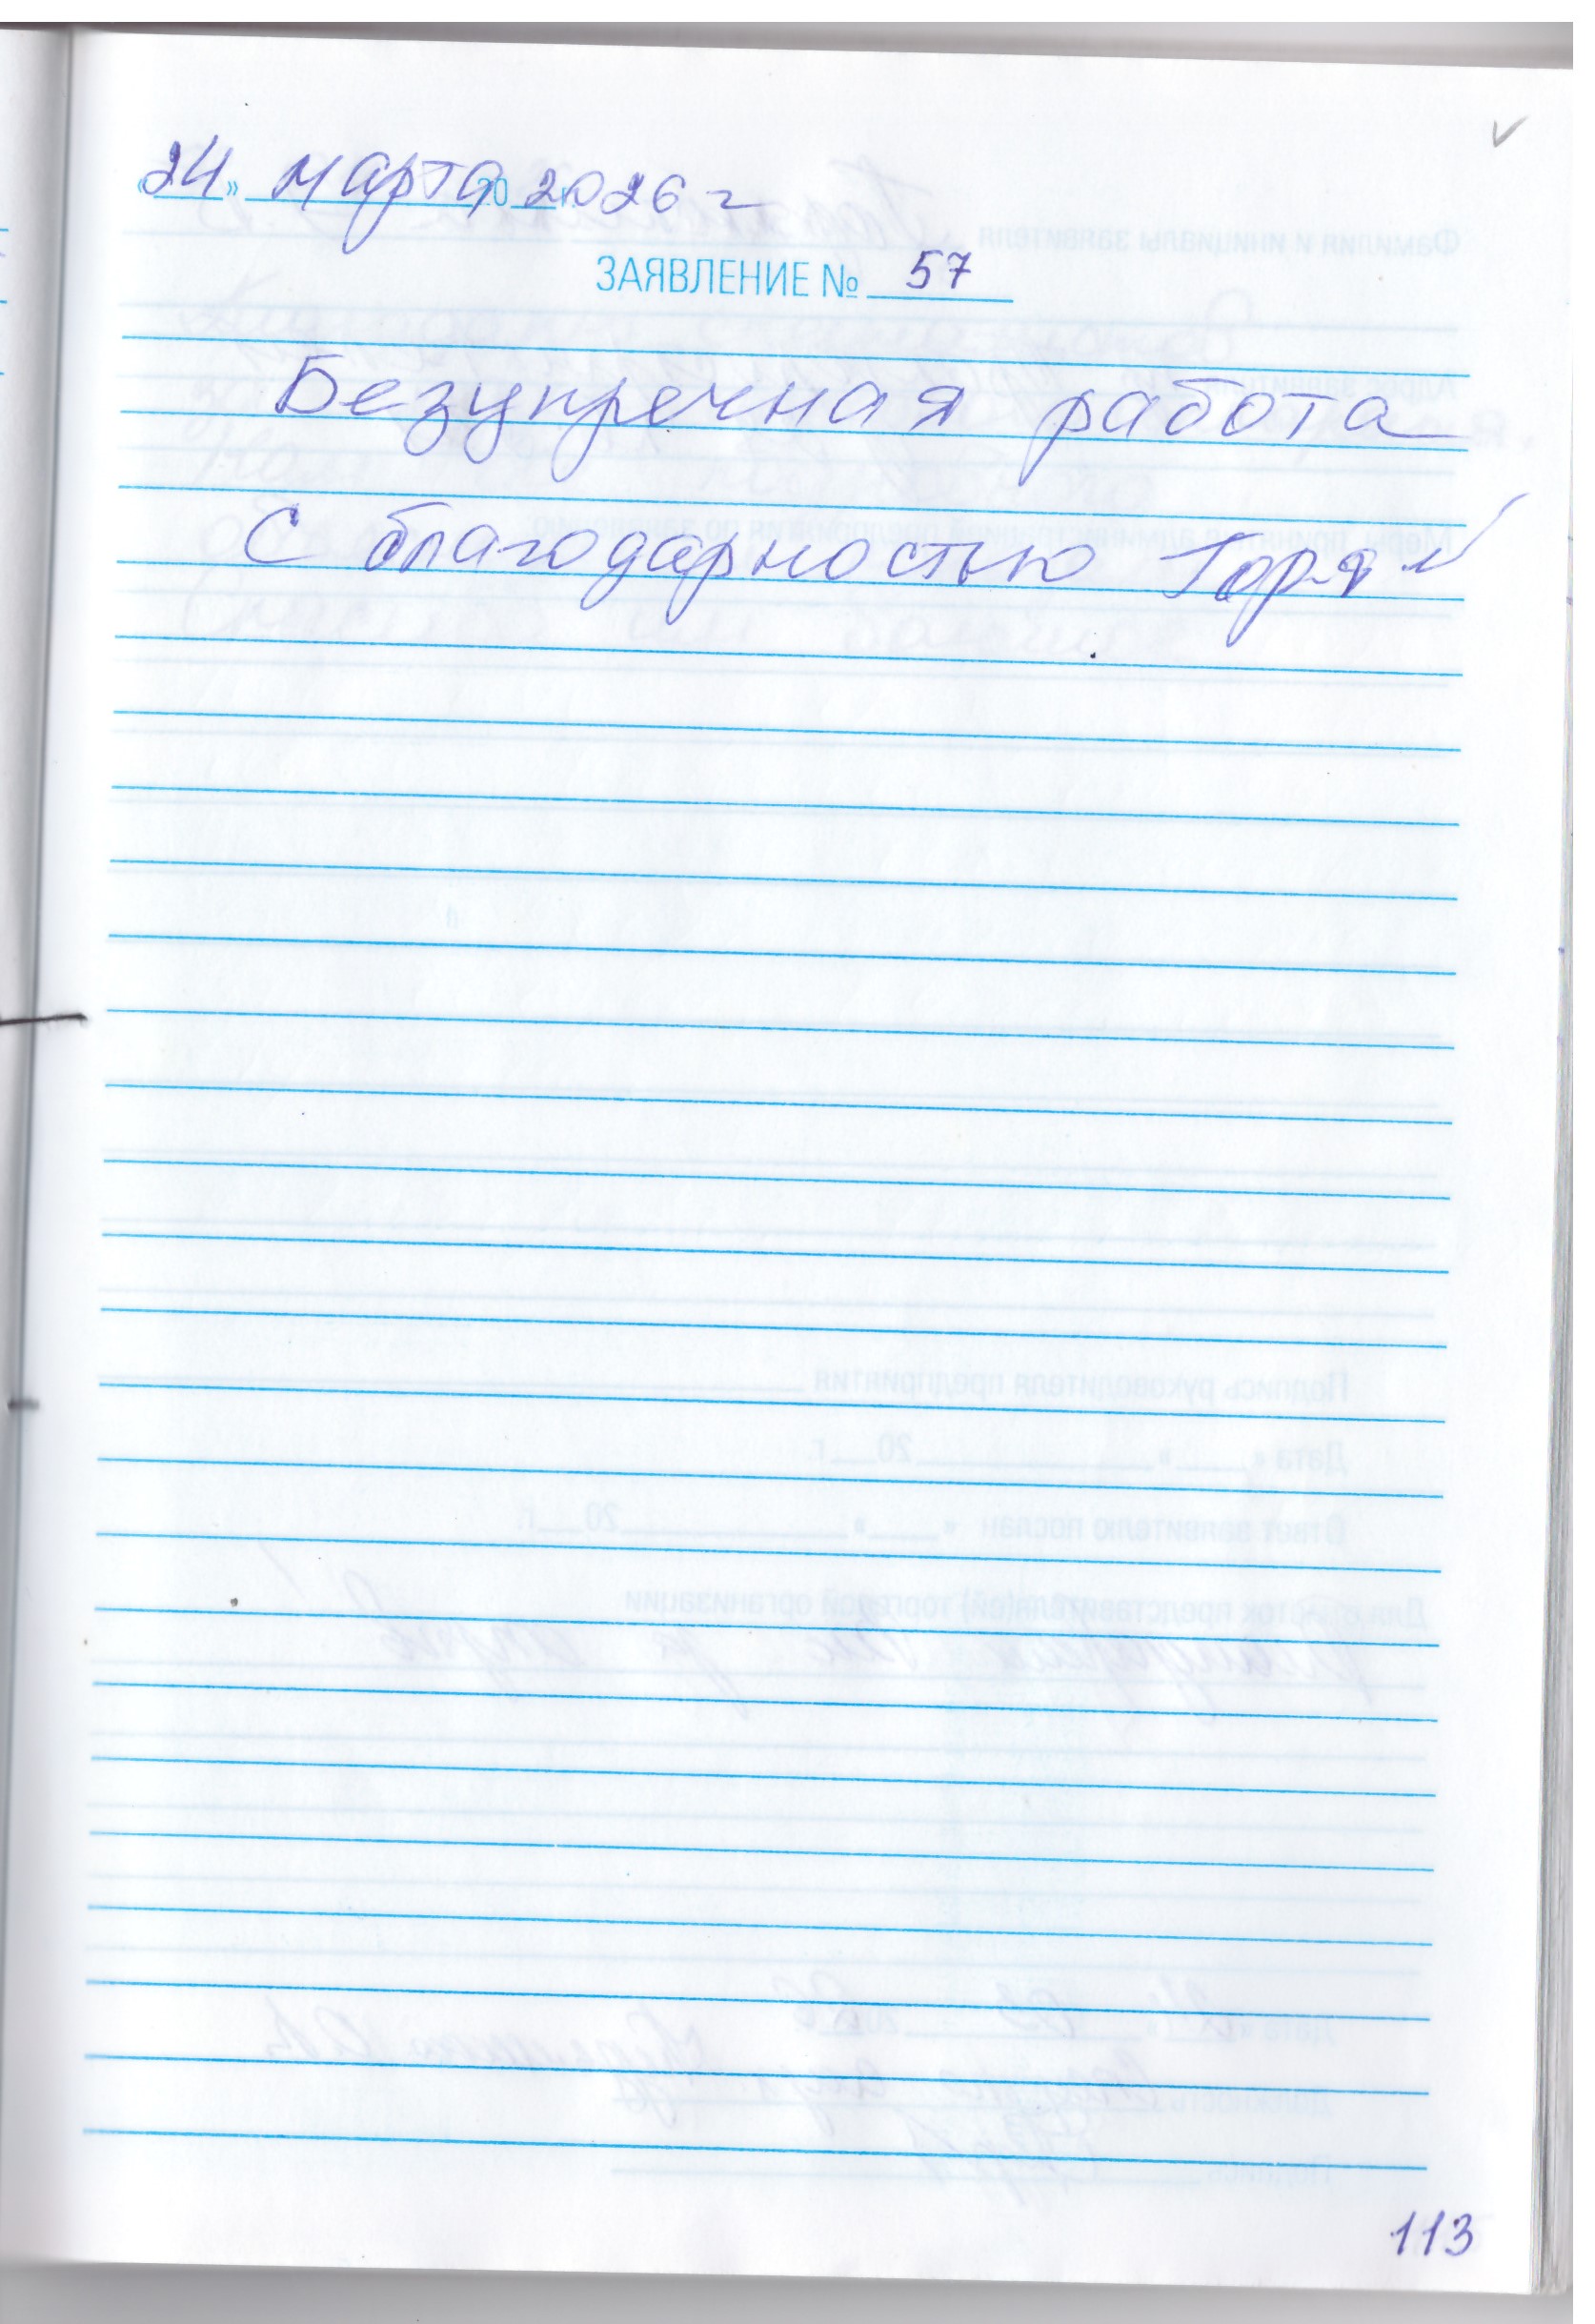 «24» марта 20 2026 г
ЗАЯВЛЕНИЕ № 57
Безупречная работа
С благодарностью
113